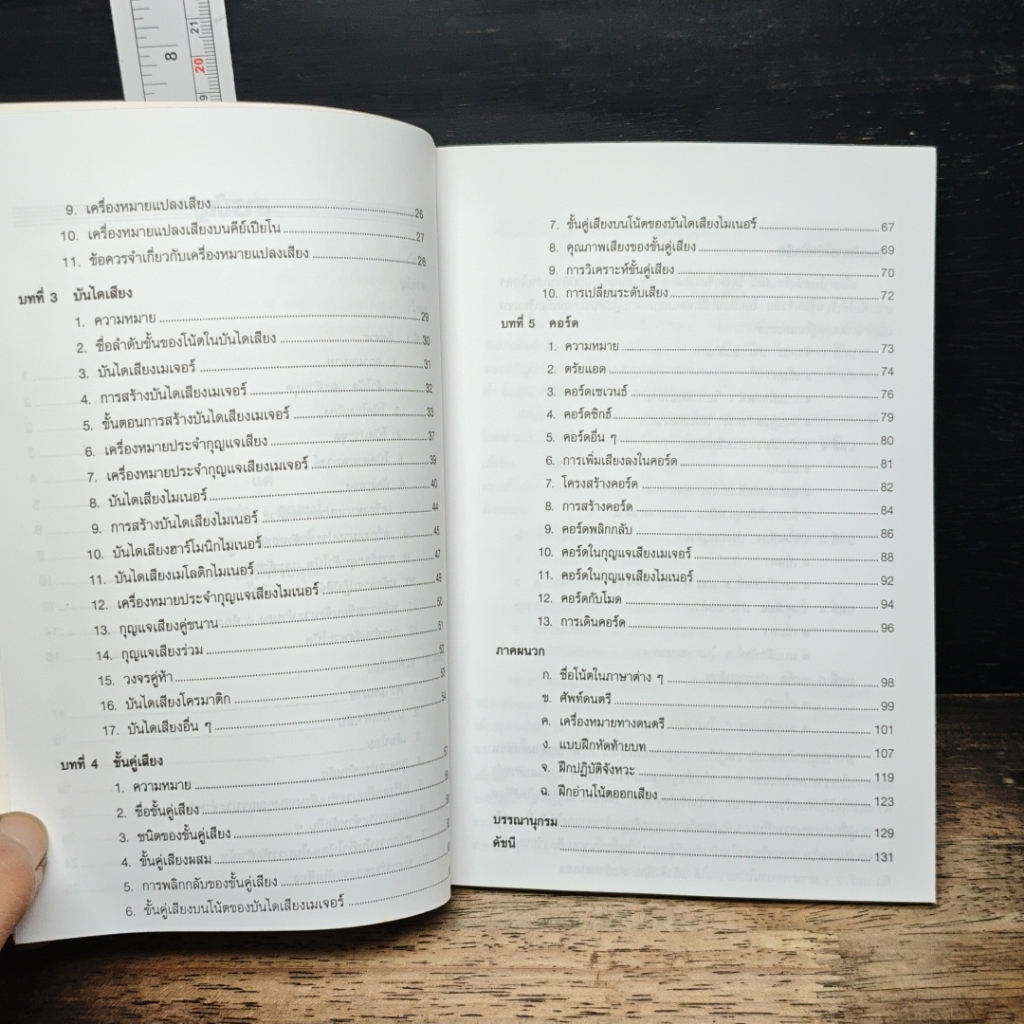 8
21
20
9
9. เครื่องหมายแปลงเสียง 26
10. เครื่องหมายแปลงเสียงบนคีย์เปียโน 27
11. ข้อควรจำเกี่ยวกับเครื่องหมายแปลงเสียง 28
บทที่ 3 บันไดเสียง
1. ความหมาย 29
2. ชื่อลำดับขั้นของโน้ตในบันไดเสียง 30
3. บันไดเสียงเมเจอร์ 31
4. การสร้างบันไดเสียงเมเจอร์ 32
5. ขั้นตอนการสร้างบันไดเสียงเมเจอร์ 33
6. เครื่องหมายประจำกุญแจเสียง 37
7. เครื่องหมายประจำกุญแจเสียงเมเจอร์ 39
8. บันไดเสียงไมเนอร์ 40
9. การสร้างบันไดเสียงไมเนอร์ 44
10. บันไดเสียงฮาร์โมนิกไมเนอร์ 45
11. บันไดเสียงเมโลดิกไมเนอร์ 47
12. เครื่องหมายประจำกุญแจเสียงไมเนอร์ 48
13. กุญแจเสียงคู่ขนาน 50
14. กุญแจเสียงร่วม 51
15. วงจรคู่ห้า 52
16. บันไดเสียงโครมาติก 53
17. บันไดเสียงอื่น ๆ 54
บทที่ 4 ขั้นคู่เสียง
1. ความหมาย
2. ชื่อขั้นคู่เสียง
3. ชนิดของขั้นคู่เสียง
4. ขั้นคู่เสียงผสม
5. การพลิกกลับของขั้นคู่เสียง
6. ขั้นคู่เสียงบนโน้ตของบันไดเสียงเมเจอร์
7. ขั้นคู่เสียงบนโน้ตของบันไดเสียงไมเนอร์ 67
8. คุณภาพเสียงของขั้นคู่เสียง 69
9. การวิเคราะห์ขั้นคู่เสียง 70
10. การเปลี่ยนระดับเสียง 72
บทที่ 5 คอร์ด
1. ความหมาย 73
2. ตรัยแอด 74
3. คอร์ดเซเวนธ์ 76
4. คอร์ดซิกธ์ 79
5. คอร์ดอื่น ๆ 80
6. การเพิ่มเสียงลงในคอร์ด 81
7. โครงสร้างคอร์ด 82
8. การสร้างคอร์ด 84
9. คอร์ดพลิกกลับ 86
10. คอร์ดในกุญแจเสียงเมเจอร์ 88
11. คอร์ดในกุญแจเสียงไมเนอร์ 92
12. คอร์ดกับโมด 94
13. การเดินคอร์ด 96
ภาคผนวก
ก. ชื่อโน้ตในภาษาต่าง ๆ 98
ข. ศัพท์ดนตรี 99
ค. เครื่องหมายทางดนตรี 101
ง. แบบฝึกหัดท้ายบท 107
จ. ฝึกปฏิบัติจังหวะ 119
ฉ. ฝึกอ่านโน้ตออกเสียง 123
บรรณานุกรม 129
ดัชนี 131